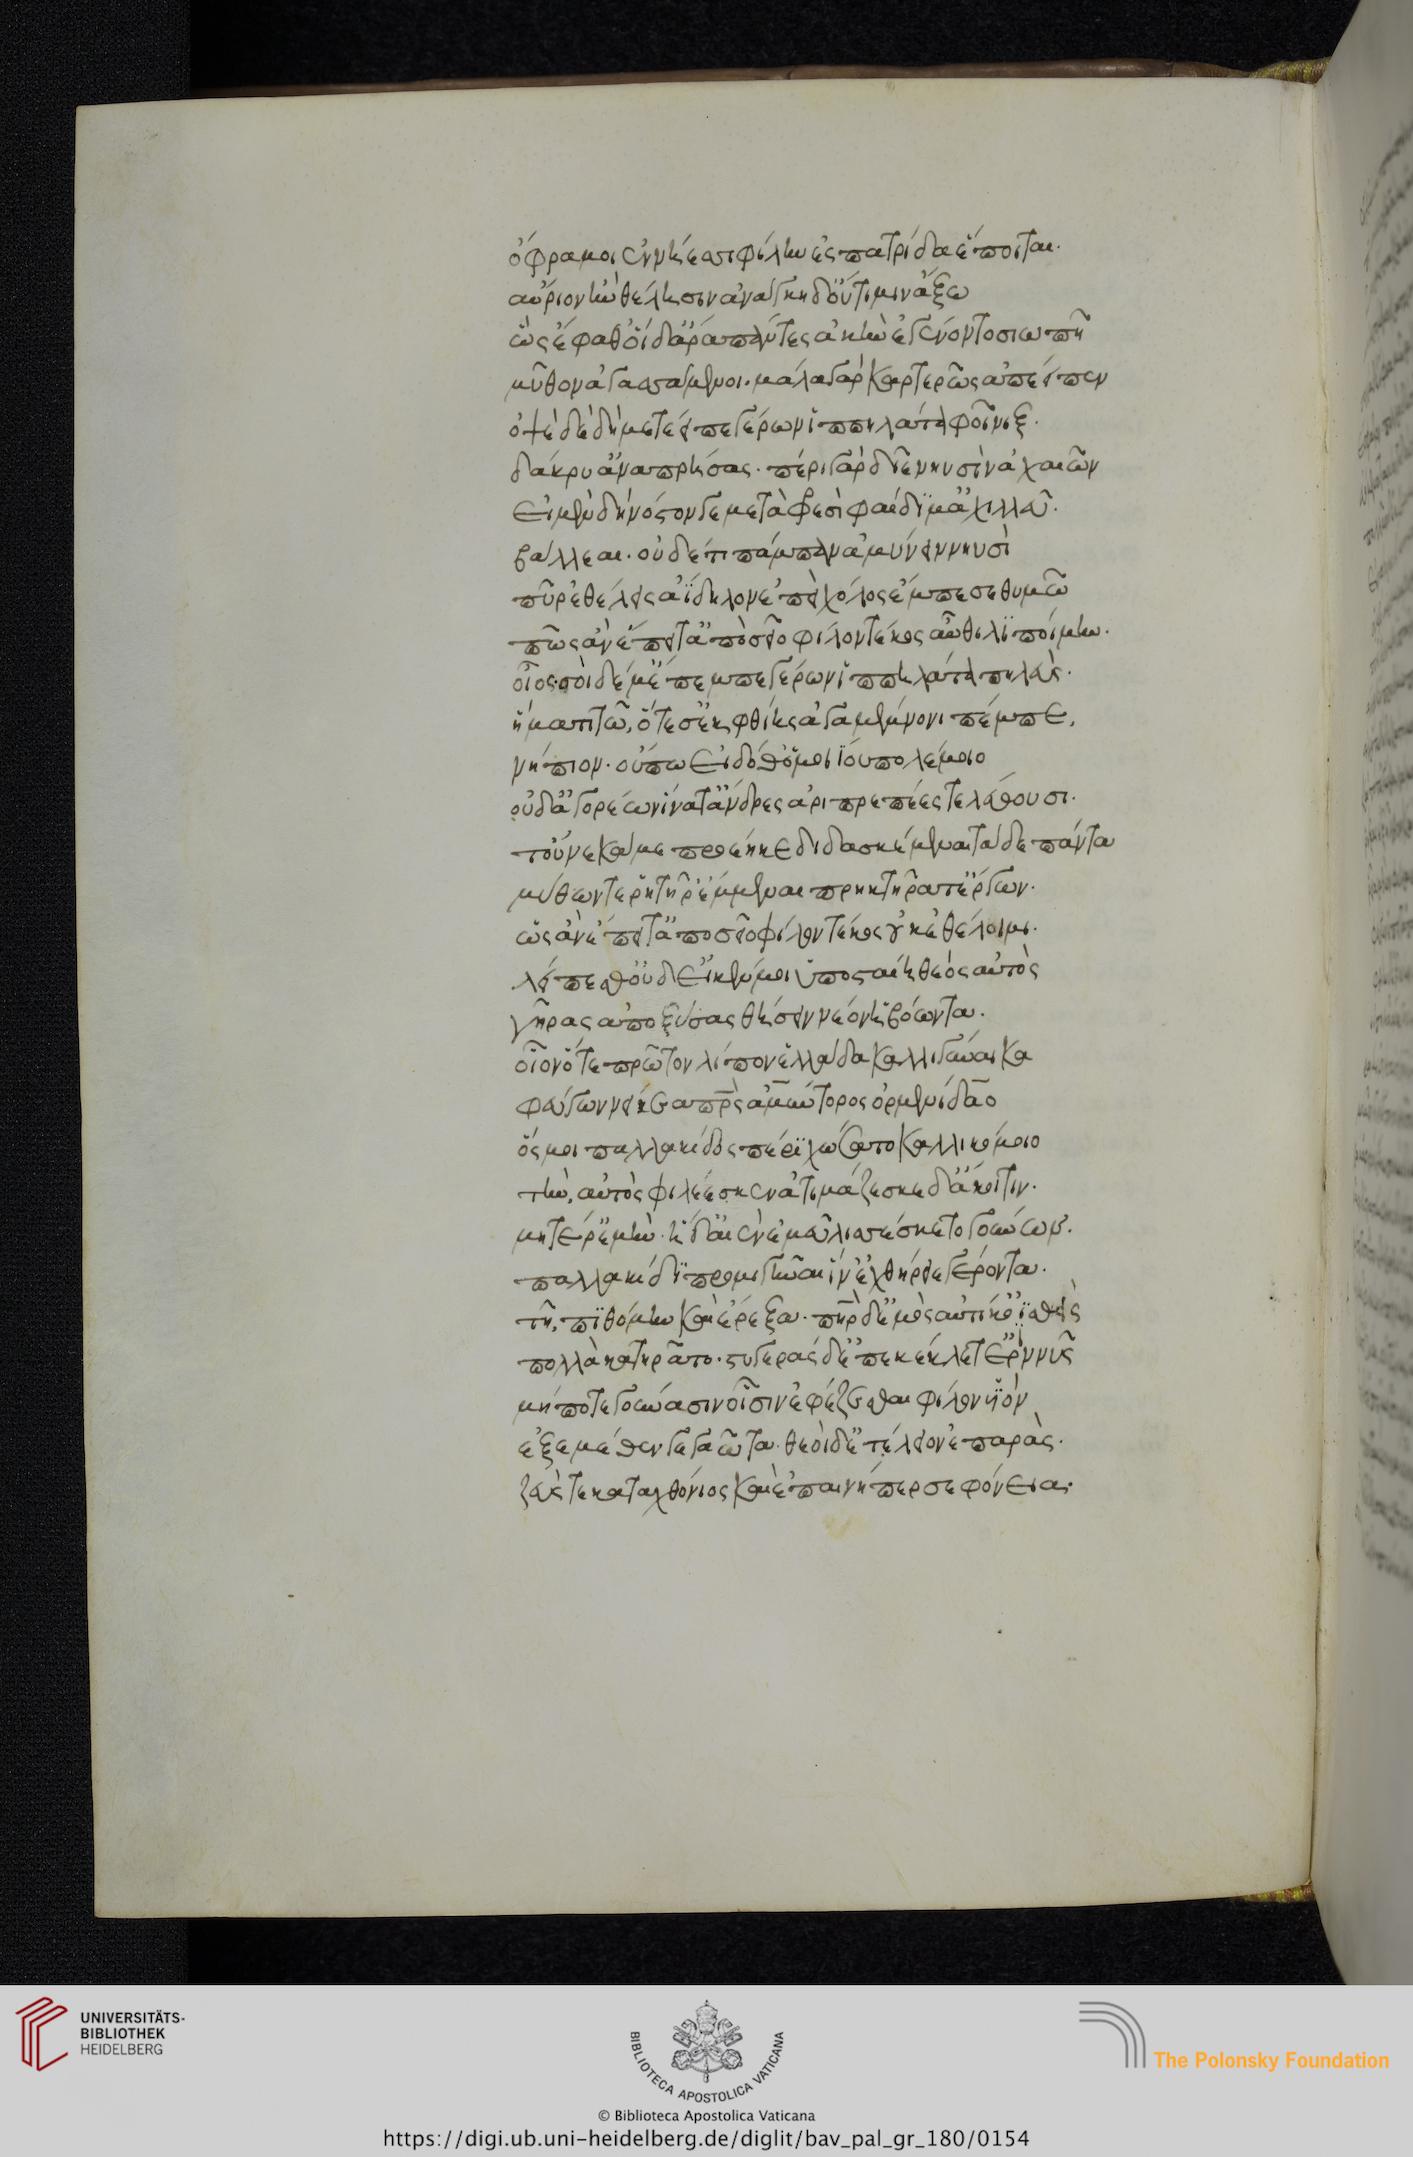 ὄφρα μοι ἐν νήεσσι φίλην ἐς πατρίδα ἕποιται.
αὔριον ἢν ἐθέλησιν ἀνάγκη δ' οὔτι μιν ἄξω
ὣς ἔφαθ' οἱ δ' ἄρα πάντες ἀκὴν ἐγένοντο σιωπῆ
μῦθον ἀγασσάμενοι. μάλα γὰρ καρτερῶς ἀπέειπεν
ὀψὲ δὲ δὴ μετέειπε γέρων ἱππηλάτα φοῖνιξ.
δάκρυ ἀναπρήσας. πέρι γὰρ δῖε νηυσὶν ἀχαιῶν
εἰ μὲν δὴ νόστον γε μετὰ φρεσὶ φαίδιμ' ἀχιλλεῦ.
βάλλεαι. οὐδέ τι πάμπαν ἀμύνειν νηυσὶ
πῦρ ἐθέλεις ἀΐδηλον ἐπεὶ χόλος ἔμπεσε θυμῶ
πῶς ἂν ἔπειτ' ἀπὸ σεῖο φίλον τέκος αὖθι λιποίμην.
οἶος σοὶ δέ μ' ἔπεμπε γέρων ἱππηλάτα πηλεὺς.
ἤματι τῶ, ὅτε σ' ἐκ φθίης ἀγαμέμνονι πέμπε,
νήπιον. οὔπω εἰδόθ' ὁμοιΐου πολέμοιο
οὐδ' ἀγορέων ἵνα τ' ἄνδρες ἀριπρεπέες τελέθουσι.
τοὔνεκά με προέηκε διδασκέμεναι τάδε πάντα
μύθων τε ῥητῆρ' ἔμμεναι πρηκτῆρά τε ἔργων.
ὣς ἂν ἔπειτ' ἀπὸ σεῖο φίλον τέκος οὐκ ἐθέλοιμι.
λείπεσθ' οὐδ' εἴ κέν μοι ὑποσταίη θεὸς αὐτὸς
γῆρας ἀποξύσας θήσειν νέον ἡβώοντα.
οἷον ὅτε πρῶτον λίπον ἑλλάδα καλλιγύναικα
φεύγων νείκεα πατρὸς ἀμύντορος ὀρμενίδαο
ὅς μοι παλλακίδος πέρι χώσατο καλλικόμοιο
τὴν, αὐτὸς φιλέεσκεν ἀτιμάζεσκε δ' ἄκοιτιν.
μητέρ' ἐμήν. ἡ δ' αἰὲν ἐμὲ λισσέσκετο γούνων.
παλλακίδι προμιγῆναι ἵν' ἐχθήρειε γέροντα.
τῆ, πιθόμην καὶ ἔρεξα. πατὴρ δ' ἐμὸς αὐτίκ' ὀϊσθεὶς
πολλὰ κατηρᾶτο. στυγερὰς δ' ἐπεκέκλετ' ἐριννῦς
μήποτε γούνασιν οἷσιν ἐφέζεσθαι φίλον υἱὸν
ἐξ ἐμέθεν γεγαῶτα. θεοὶ δ' ἐτέλειον ἐπαρὰς.
ζεύς τε καταχθόνιος καὶ ἐπαινὴ περσεφόνεια.
UNIVERSITÄTS-
BIBLIOTHEK
HEIDELBERG
BIBLIOTECA APOSTOLICA VATICANA
The Polonsky Foundation
© Biblioteca Apostolica Vaticana
https://digi.ub.uni-heidelberg.de/diglit/bav_pal_gr_180/0154